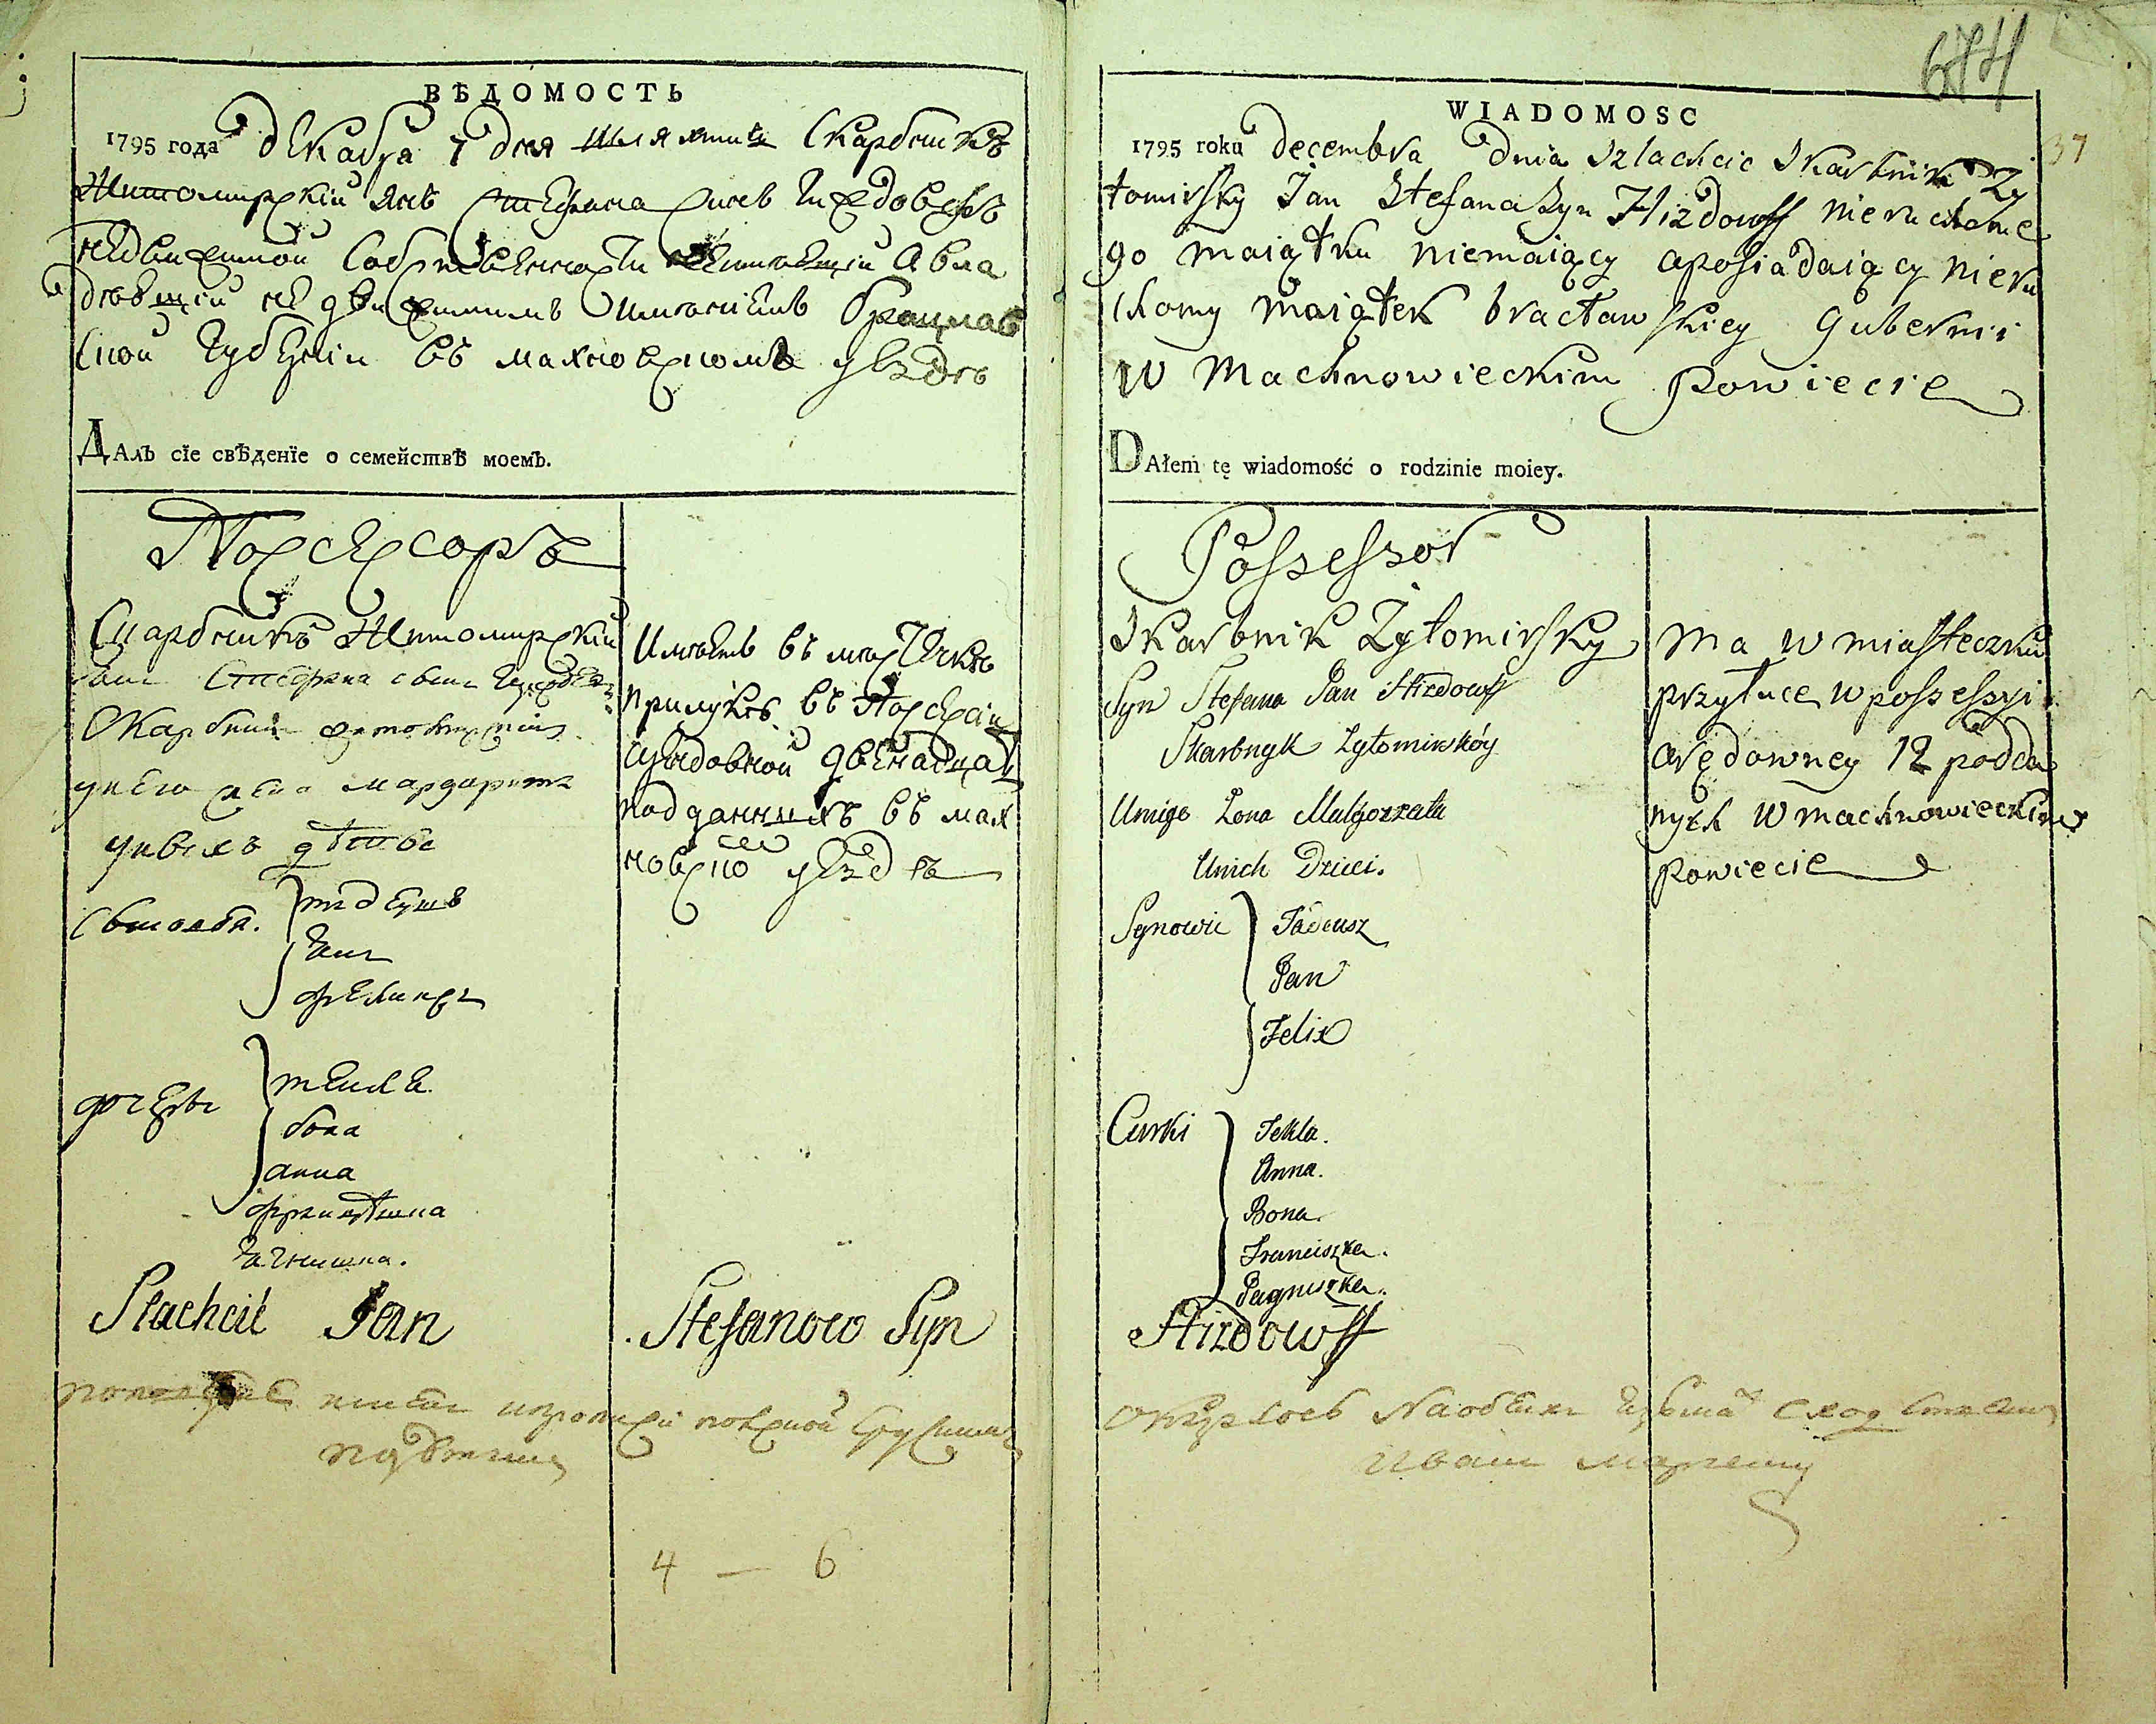 ВѢДОМОСТЬ
1795 года декабря 7 дня шляхтичъ Скарбникъ
Житомирскій Янъ Стефана синъ Гиждовскъ
недвижимой Собственности неимѣющій авла
дѣющій недвижимимъ имѣніемъ Брацлав
ской Губерніи въ махновскомъ уѣздѣ
ДАлъ сїе свѣденїе о семействѣ моемъ.
Посесоръ
Скарбникъ Житомирскій
Янъ Стефана синъ
Скарбникъ
унего жена маргарита
унихъ дѣти
синовя. тадеушъ
Янъ
феликсъ
дочери текля
бона
анна
францишка
Ягнишка.
Имѣетъ въ мѣстечкѣ
прилукѣ въ посесіи
арендовной двенадцать
подданнихъ въ мах
новско уѣздѣ
Slachcić Jan Stefanow Syn
4 — 6
674
37
WIADOMOSC
1795 roku decembra dnia Szlachcic Skarbnik Zy
tomirsky Jan Stefana Syn Hizdowff nieruchome
go maiątku niemaiący aposiadaiący nieru
chomy maiątek bracławskiey Gubernii
W Machnowieckim Powiecie
DAłem tę wiadomość o rodzinie moiey.
Possessor
Skarbnik Zytomirsky
Syn Stefana Jan Hizdowff
Skarbnyk Zytomirskóy
Uniego Zona Malgorzata
Unich Dzieci.
Synowie Tadeusz
Jan
Felix
Curki Tekla.
Anna.
Bona.
Franciszka.
Jagniszka.
Ma w miasteczku
przyłuce w possessyi
arędowney 12 podda
nych w machnowieckim
Powiecie
Hizdowff